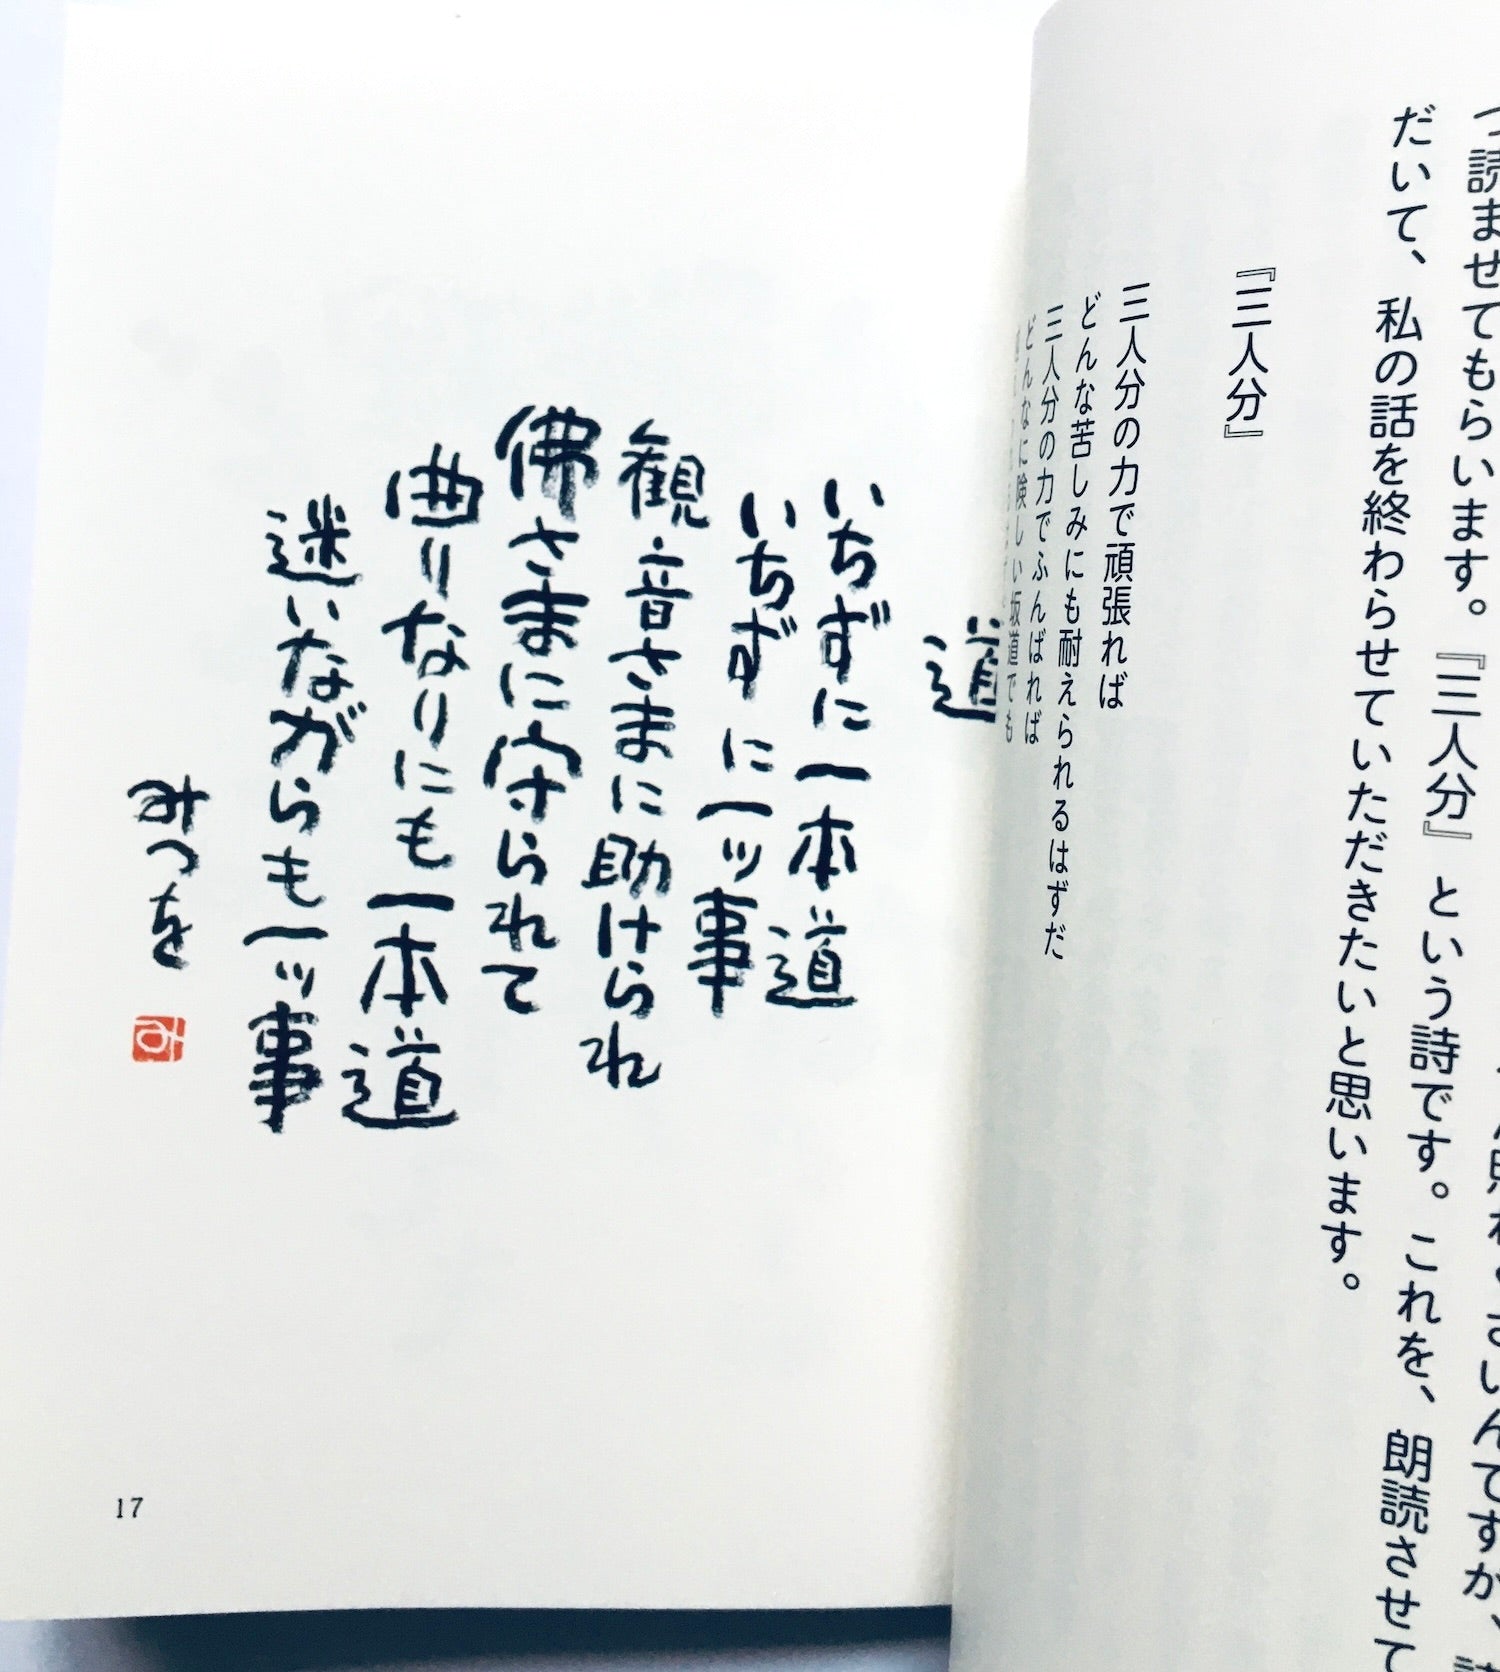 さいんですが、
つ読ませてもらいます。『三人分』という詩です。これを、朗読させて
だいて、私の話を終わらせていただきたいと思います。
『三人分』
三人分の力で頑張れば
どんな苦しみにも耐えられるはずだ
三人分の力でふんばれば
どんなに険しい坂道でも
道
いちずに一本道
いちずに一ッ事
観音さまに助けられ
佛さまに守られて
曲りなりにも一本道
迷いながらも一ッ事
みつを
み
17